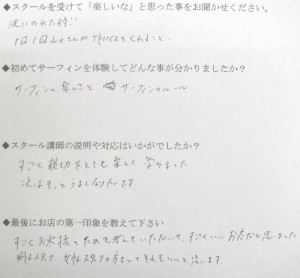 ◆スクールを受けて「楽しいな」と思った事をお聞かせください。
波にのれた時!!
1回1回 さんがアドバイスをくれること。
◆初めてサーフィンを体験してどんな事が分かりましたか?
サーフィンの楽しさと サーフィンのルール
◆スクール講師の説明や対応はいかがでしたか?
すごく親切でとても楽しく学べました
次はもっと うまくなりたいです
◆最後にお店の第一印象を教えて下さい
すごくお客様のためを考えていただいて、すごくいいお店だなと思いました
女性スタッフの方もいてそれもいいと思います。